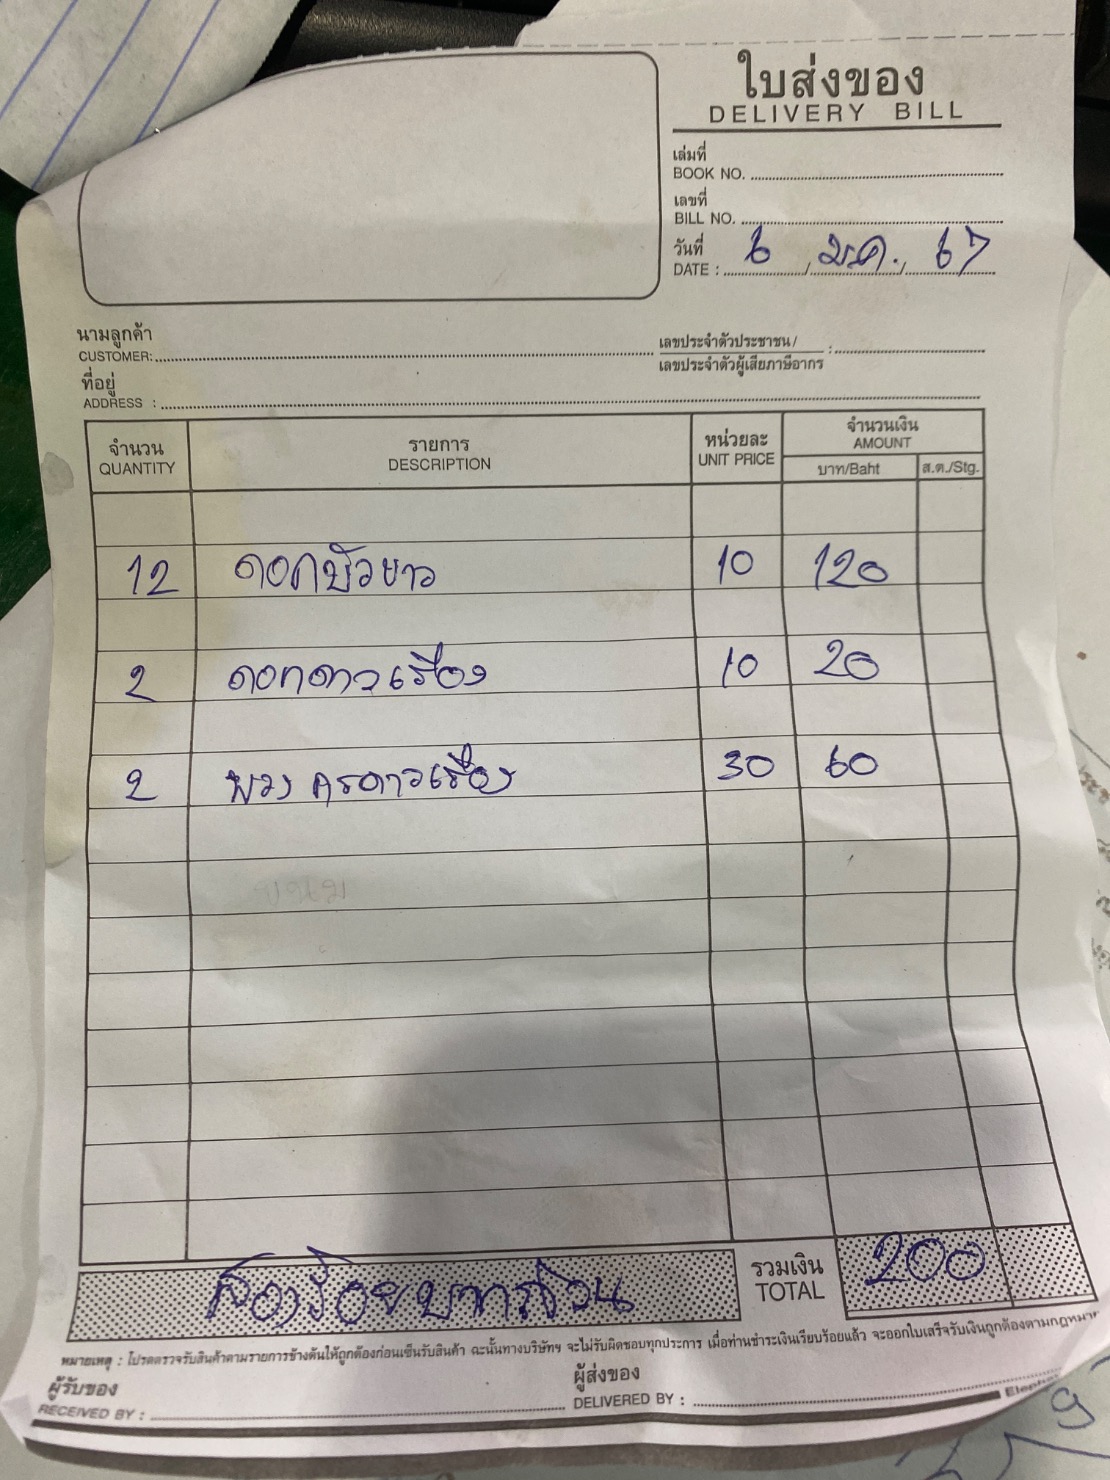 ใบส่งของ
DELIVERY BILL
เล่มที่
BOOK NO.
เลขที่
BILL NO.
วันที่
DATE : 6 / ม.ค. / 67
นามลูกค้า
CUSTOMER:
เลขประจำตัวประชาชน /
เลขประจำตัวผู้เสียภาษีอากร :
ที่อยู่
ADDRESS :
จำนวน รายการ หน่วยละ จำนวนเงิน
QUANTITY DESCRIPTION UNIT PRICE AMOUNT
บาท/Baht ส.ต./Stg.
12 ดอกบัวขาว 10 120
2 ดอกดาวเรือง 10 20
2 พวง ดาวเรือง 30 60
ขนม
สองร้อยบาทถ้วน
รวมเงิน
TOTAL 200
หมายเหตุ : โปรดตรวจรับสินค้าตามรายการข้างต้นให้ถูกต้องก่อนเซ็นรับสินค้า ฉะนั้นทางบริษัทฯ จะไม่รับผิดชอบทุกประการ เมื่อท่านชำระเงินเรียบร้อยแล้ว จะออกใบเสร็จรับเงินถูกต้องตามกฎหมาย
ผู้รับของ
RECEIVED BY :
ผู้ส่งของ
DELIVERED BY :